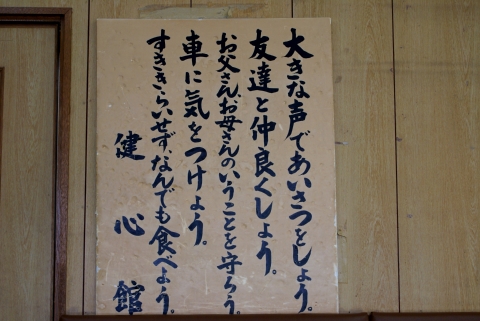 大きな声であいさつをしょう。
友達と仲良くしょう。
お父さん、お母さんのいうことを守ろう。
車に気をつけょう。
すききらいせず、なんでも食べよう。
健心館